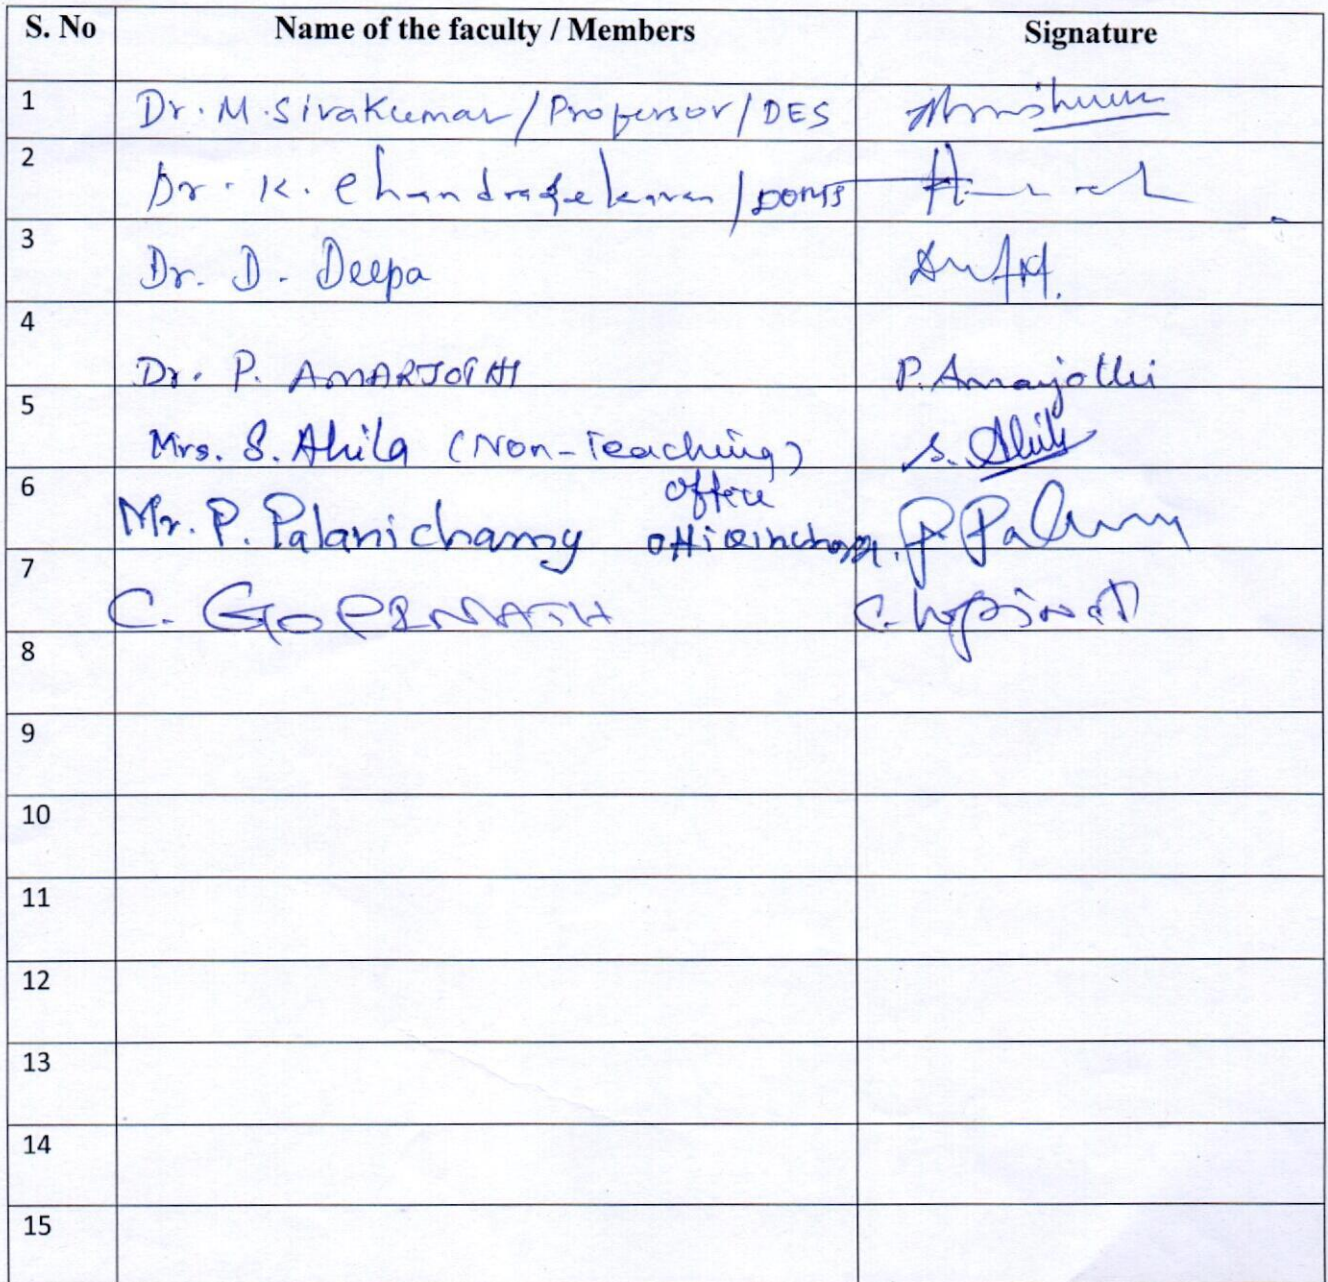 S. No Name of the faculty / Members Signature
1 Dr. M. Sivakumar / Professor / DES
2 Dr. K. Chandrasekaran / DOMS
3 Dr. D. Deepa
4 Dr. P. AMARJOTHI P. Amarjothi
5 Mrs. S. Ahila (Non-Teaching) S. Ahila
6 office
Mr. P. Palanichamy P
7 C. GOPINATH C. Gopinath
8
9
10
11
12
13
14
15